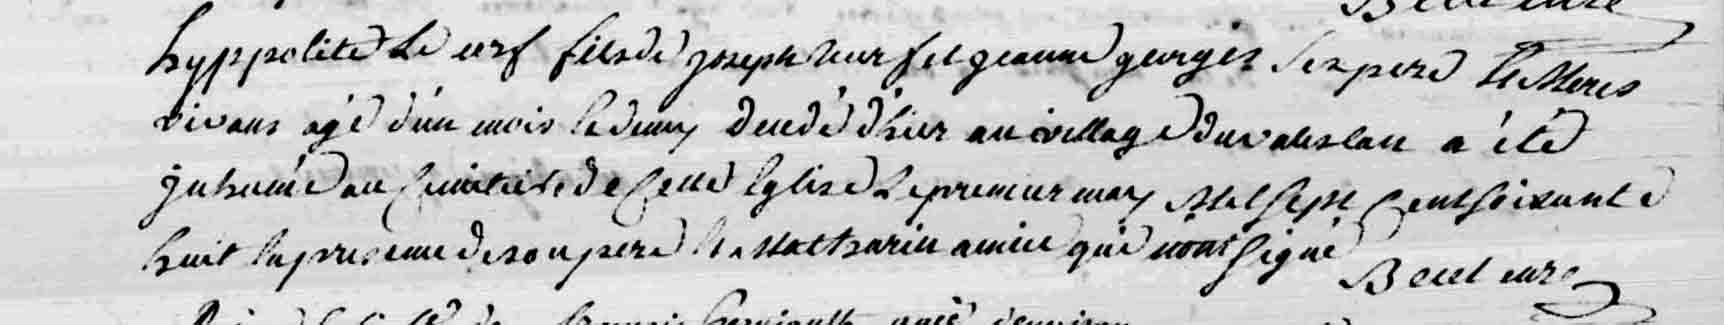 Becel cure
hyppolite Le cerf fils de joseph le cerf et jeanne georges Ses pere Et Meres
vivans agé d'un mois Et demy decedé d'hier au village du a été
jnhumé au Cimetiere de Cette Eglise Le premier may Mil Sept Cent Soixante
huit En presence de son pere Et Mathurin amice qui n'ont Signé
Becel cure